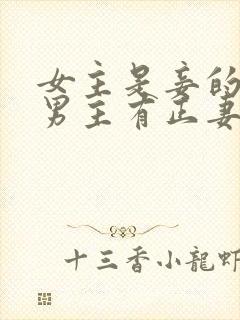 女主是妾的
男主有正妻
十三香小龍蝦